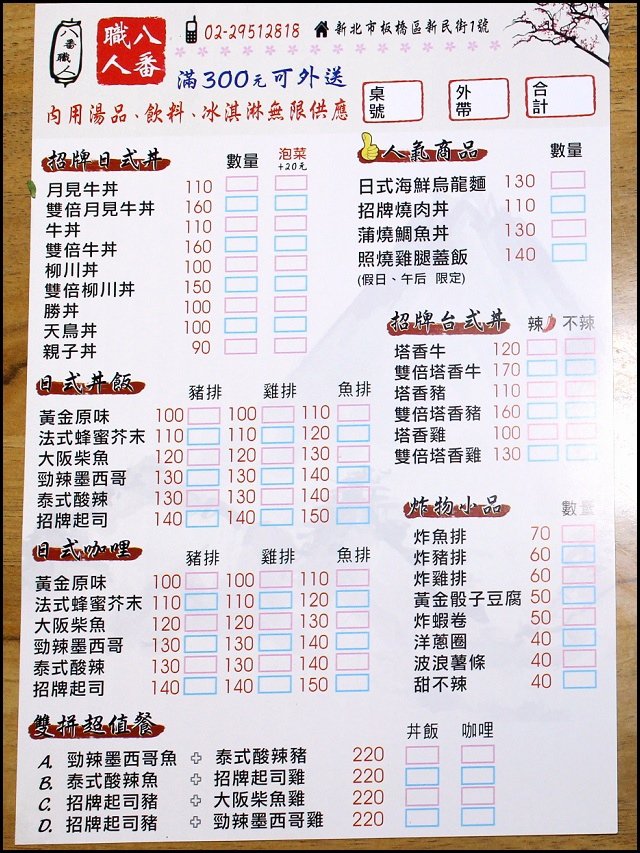 八番職人
八番
職人
02-29512818 新北市板橋區新民街1號
滿300元可外送
桌號 外帶 合計
內用湯品、飲料、冰淇淋無限供應
招牌日式丼 數量 泡菜+20元
月見牛丼 110
雙倍月見牛丼 160
牛丼 110
雙倍牛丼 160
柳川丼 100
雙倍柳川丼 150
勝丼 100
天鳥丼 100
親子丼 90
日式丼飯 豬排 雞排 魚排
黃金原味 100 100 110
法式蜂蜜芥末 110 110 120
大阪柴魚 120 120 130
勁辣墨西哥 130 130 140
泰式酸辣 130 130 140
招牌起司 140 140 150
日式咖哩 豬排 雞排 魚排
黃金原味 100 100 110
法式蜂蜜芥末 110 110 120
大阪柴魚 120 120 130
勁辣墨西哥 130 130 140
泰式酸辣 130 130 140
招牌起司 140 140 150
人氣商品 數量
日式海鮮烏龍麵 130
招牌燒肉丼 110
蒲燒鯛魚丼 130
照燒雞腿蓋飯 140
(假日、午后 限定)
招牌台式丼 辣 不辣
塔香牛 120
雙倍塔香牛 170
塔香豬 110
雙倍塔香豬 160
塔香雞 100
雙倍塔香雞 130
炸物小品 數量
炸魚排 70
炸豬排 60
炸雞排 60
黃金骰子豆腐 50
炸蝦卷 50
洋蔥圈 40
波浪薯條 40
甜不辣 40
雙拼超值餐 丼飯 咖哩
A. 勁辣墨西哥魚 + 泰式酸辣豬 220
B. 泰式酸辣魚 + 招牌起司雞 220
C. 招牌起司豬 + 大阪柴魚雞 220
D. 招牌起司豬 + 勁辣墨西哥雞 220